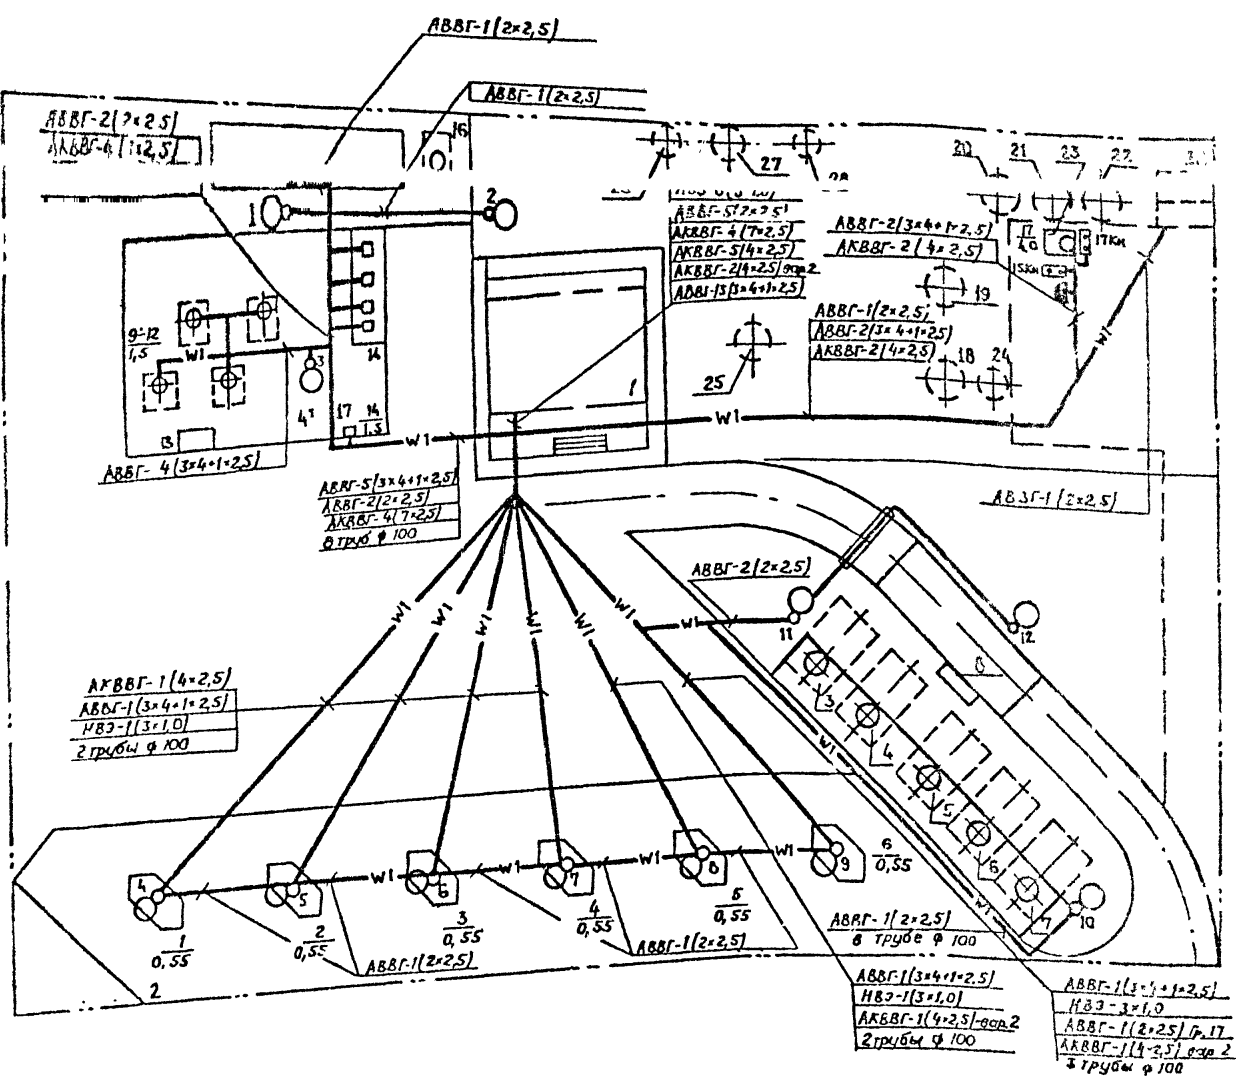 АВВГ-1(2×2,5)
АВВГ-1(2×2,5)
АВВГ-2(2×2,5)
АКВВГ-4(7×2,5)
16
27
28
20
21
23
22
1
2
АВВГ-5(2×2,5)
АКВВГ-4(7×2,5)
АКВВГ-5(4×2,5)
АКВВГ-2(4×2,5) вар.2
АВВГ-13(3×4+1×2,5)
АВВГ-2(3×4+1×2,5)
АКВВГ-2(4×2,5)
17
17КН
15КН
19
АВВГ-1(2×2,5)
АВВГ-2(3×4+1×2,5)
АКВВГ-2(4×2,5)
W1
9÷12
1,5
W1
3
14
18
24
25
1
4
17
14
1,5
W1
W1
13
АВВГ-4(3×4+1×2,5)
АВВГ-5(3×4+1×2,5)
АВВГ-2(2×2,5)
АКВВГ-4(7×2,5)
8 труб ф 100
АВВГ-1(2×2,5)
АВВГ-2(2×2,5)
W1
W1
W1
W1
W1
W1
W1
11
12
8
АКВВГ-1(4×2,5)
АВВГ-1(3×4+1×2,5)
НВЭ-1(3×1,0)
2 трубы ф 100
3
4
5
6
7
W1
W1
10
4
5
6
7
8
9
W1
W1
W1
W1
1
0,55
2
0,55
3
0,55
4
0,55
5
0,55
6
0,55
АВВГ-1(2×2,5)
АВВГ-1(2×2,5)
АВВГ-1(2×2,5)
в трубе ф 100
2
АВВГ-1(3×4+1×2,5)
НВЭ-1(3×1,0)
АКВВГ-1(4×2,5)-вар.2
2 трубы ф 100
АВВГ-1(3×4+1×2,5)
НВЭ-3×1,0
АВВГ-1(2×2,5) Гр.17
АКВВГ-1(4×2,5) вар 2
трубы ф 100